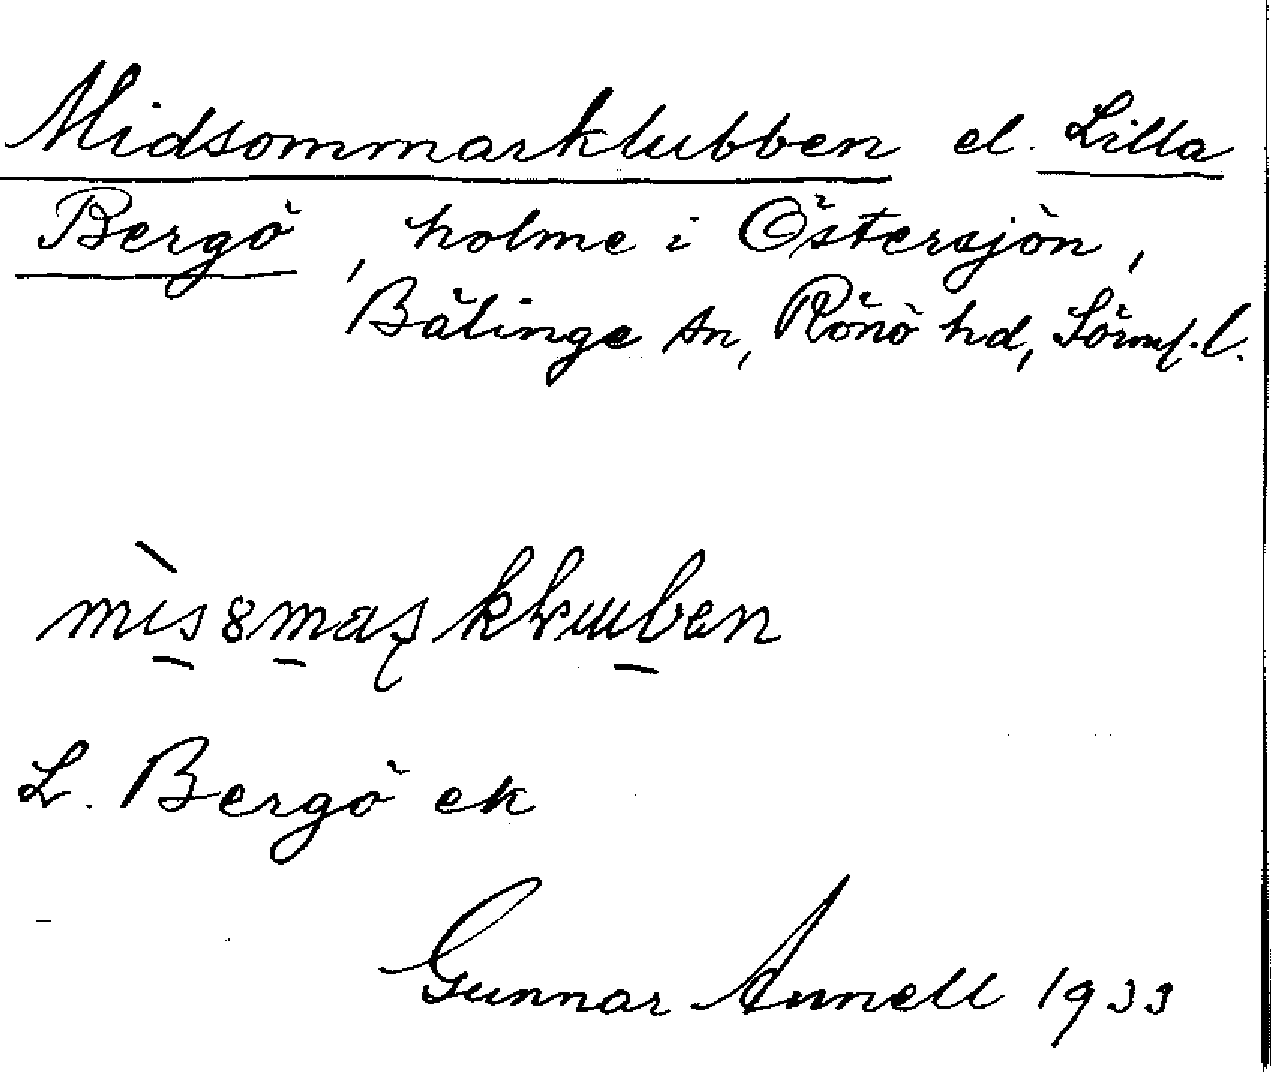 Midsommarklubben el. Lilla
Bergö, holme i Östersjön,
Bälinge sn, Rönö hd, Sörml. l.
L. Bergö ek
Gunnar Annell 1933